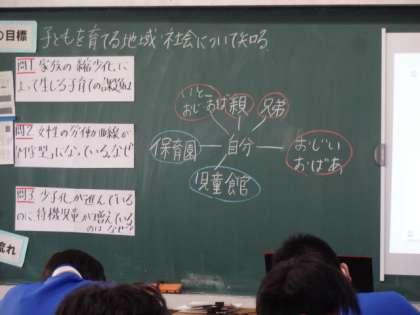 の目標
子どもを育てる地域・社会について知る
問1 家族の縮少化に
よって生じる子育ての課題は
問2 女性の労働曲線が
「M字型」になっているなぜ
問3 少子化が進んでいる
のに待機児童が増えている
のはなぜ?
流れ
いとこ
おじ・おば
親
兄弟
保育園
自分
おじい
おばあ
児童館